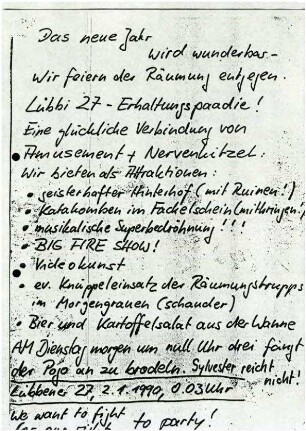 Das neue Jahr
wird wunderbar-
Wir feiern der Räumung entgegen.
Lübbi 27 - Erhaltungspaadie!
Eine glückliche Verbindung von
Amusement + Nervenkitzel:
Wir bieten als Attraktionen:
• geisterhafter Hinterhof (mit Ruinen!)
• Katakomben im Fackelschein (mitbringen!)
• musikalische Superbedröhnung!!!
• BIG FIRE SHOW!
• Videokunst
• ev. Knüppeleinsatz der Räumungstrupps
im Morgengrauen (schauder)
• Bier und Kartoffelsalat aus der Wanne
AM Dienstag morgen um null Uhr drei fängt
der Pogo an zu brodeln. Sylvester reicht
nicht!
Lübbener 27, 2.1.1990, 0.03 Uhr
We want to fight
for our right to party!